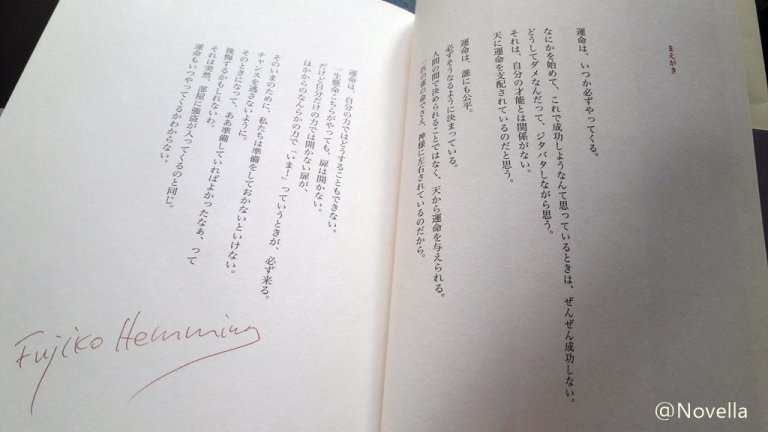 まえがき
運命は、いつか必ずやってくる。
なにかを始めて、これで成功しようなんて思っているときは、ぜんぜん成功しない。
どうしてダメなんだって、ジタバタしながら思う。
それは、自分の才能とは関係がない。
天に運命を支配されているのだと思う。
運命は、誰にも公平。
必ずそうなるように決まっている。
人間の間で決められることではなく、天から運命を与えられる。
一匹の雀の命でさえ、神様に左右されているのだから。
運命は、自分の力ではどうすることもできない。
一生懸命こちらがやっても、扉は開かない。
だけど自分だけの力では開かない扉が、
ほかからのなんらかの力で「いま！」っていうときが、必ず来る。
そのいまのために、私たちは準備をしておかないといけない。
チャンスを逃さないように。
そのときになって、ああ準備していればよかったなぁ、って
後悔するかもしれないわ。
それは突然、部屋に強盗が入ってくるのと同じ。
運命もいつやってくるかわからない。
Fujiko Hemming
@Novella